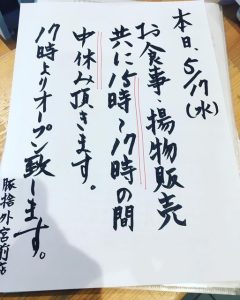 本日、5/17(水)
お食事・揚物販売
共に15時〜17時の間
中休み頂きます。
17時よりオープン致します。
豚捨外宮前店